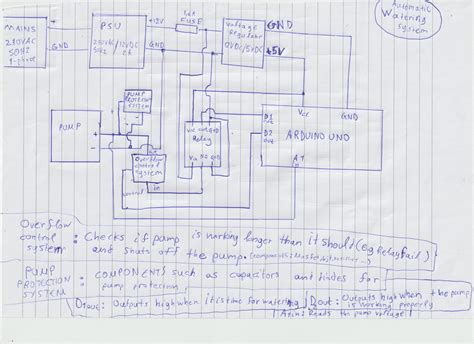 Automatic
Watering
System
MAINS
230VAC
50Hz
1-phase
PSU
230VAC/12VDC
50Hz 2A
+12V
GND
FUSE
Voltage
Regulator
12VDC/5VDC
GND
+5V
PUMP
PROTECTION
SYSTEM
PUMP
+
-
Overflow
control
system
control
in
Vcc out GND
Relay
Vin NO GND
Vcc
GND
D1
out
D2
out
ARDUINO UNO
A1
Overflow
control
system
: Checks if pump is working longer than it should (eg Relay fail)
and shuts off the pump.
PUMP
PROTECTION
SYSTEM
: COMPONENTS such as capacitors and diodes for
pump protection!
D1out: Outputs high when it is time for watering
D2out: Outputs high when the pump
is working properly
A1in: Reads the pump voltage!